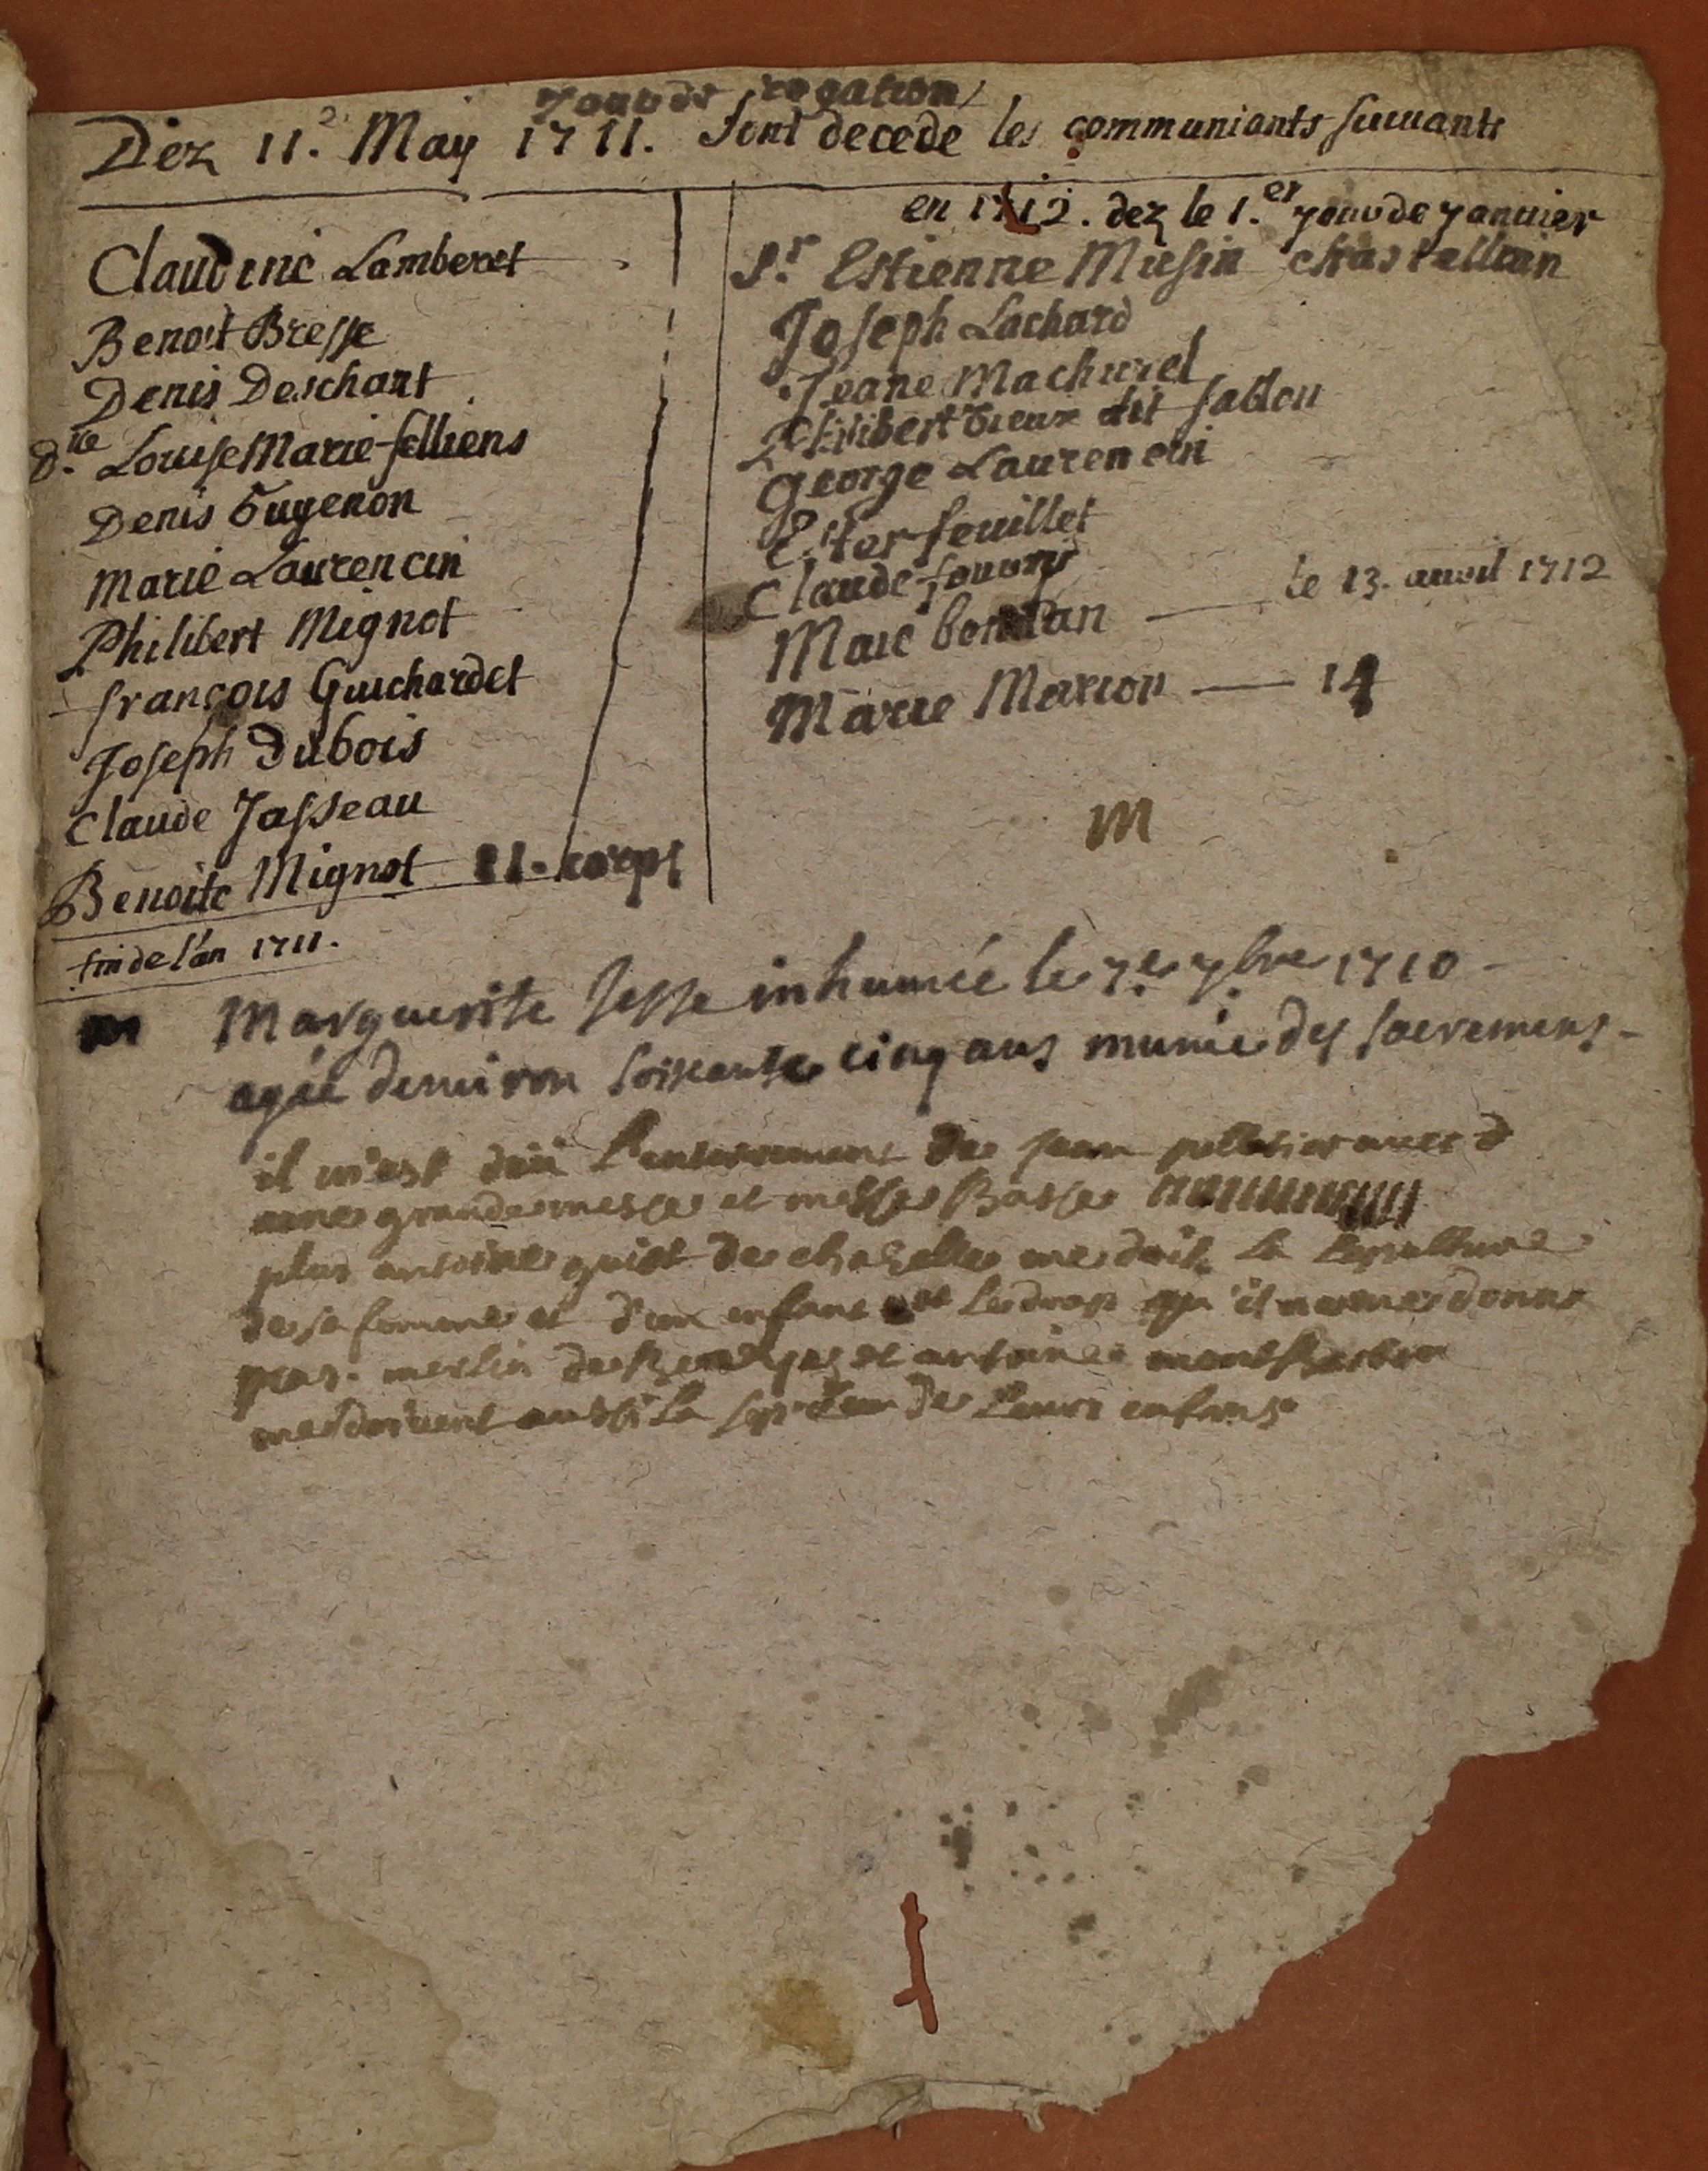 Jour de rogation
Dez 11.e May 1711. sont decede les communiants suiuants
Claudine Lamberet
Benoit Bresse
Denis Deschant
D.lle Louise Marie felliens
Denis Gugenon
Marie Laurencin
Philibert Mignot
françois Guichardet
Joseph Dubois
Claude Jasseau
Benoite Mignot 11. corps
fin de l'an 1711.
en 1712. dez le 1.er jour de januier
S.r Estienne Musin chastellain
Joseph Lachard
Jeane Machurel
Philibert dit sablon
George Laurencin
Ester feuillet
Claude
Marc le 13. auril 1712
Marie Marion 14
M
m Marguerite Jesse inhumée le 7.e 7bre 1710
agée denuiron soissante cinq ans munie des sacremens
il m'est deü l'enterrement de jean pelletier auec
une grande messe et messe basse
plus antoine de chaselle me doit la sepulture
de sa femme et d'un enfant et le drap qu'il ne me donne
pas. merlin et antoine
me doiuent aussi la de leurs enfans